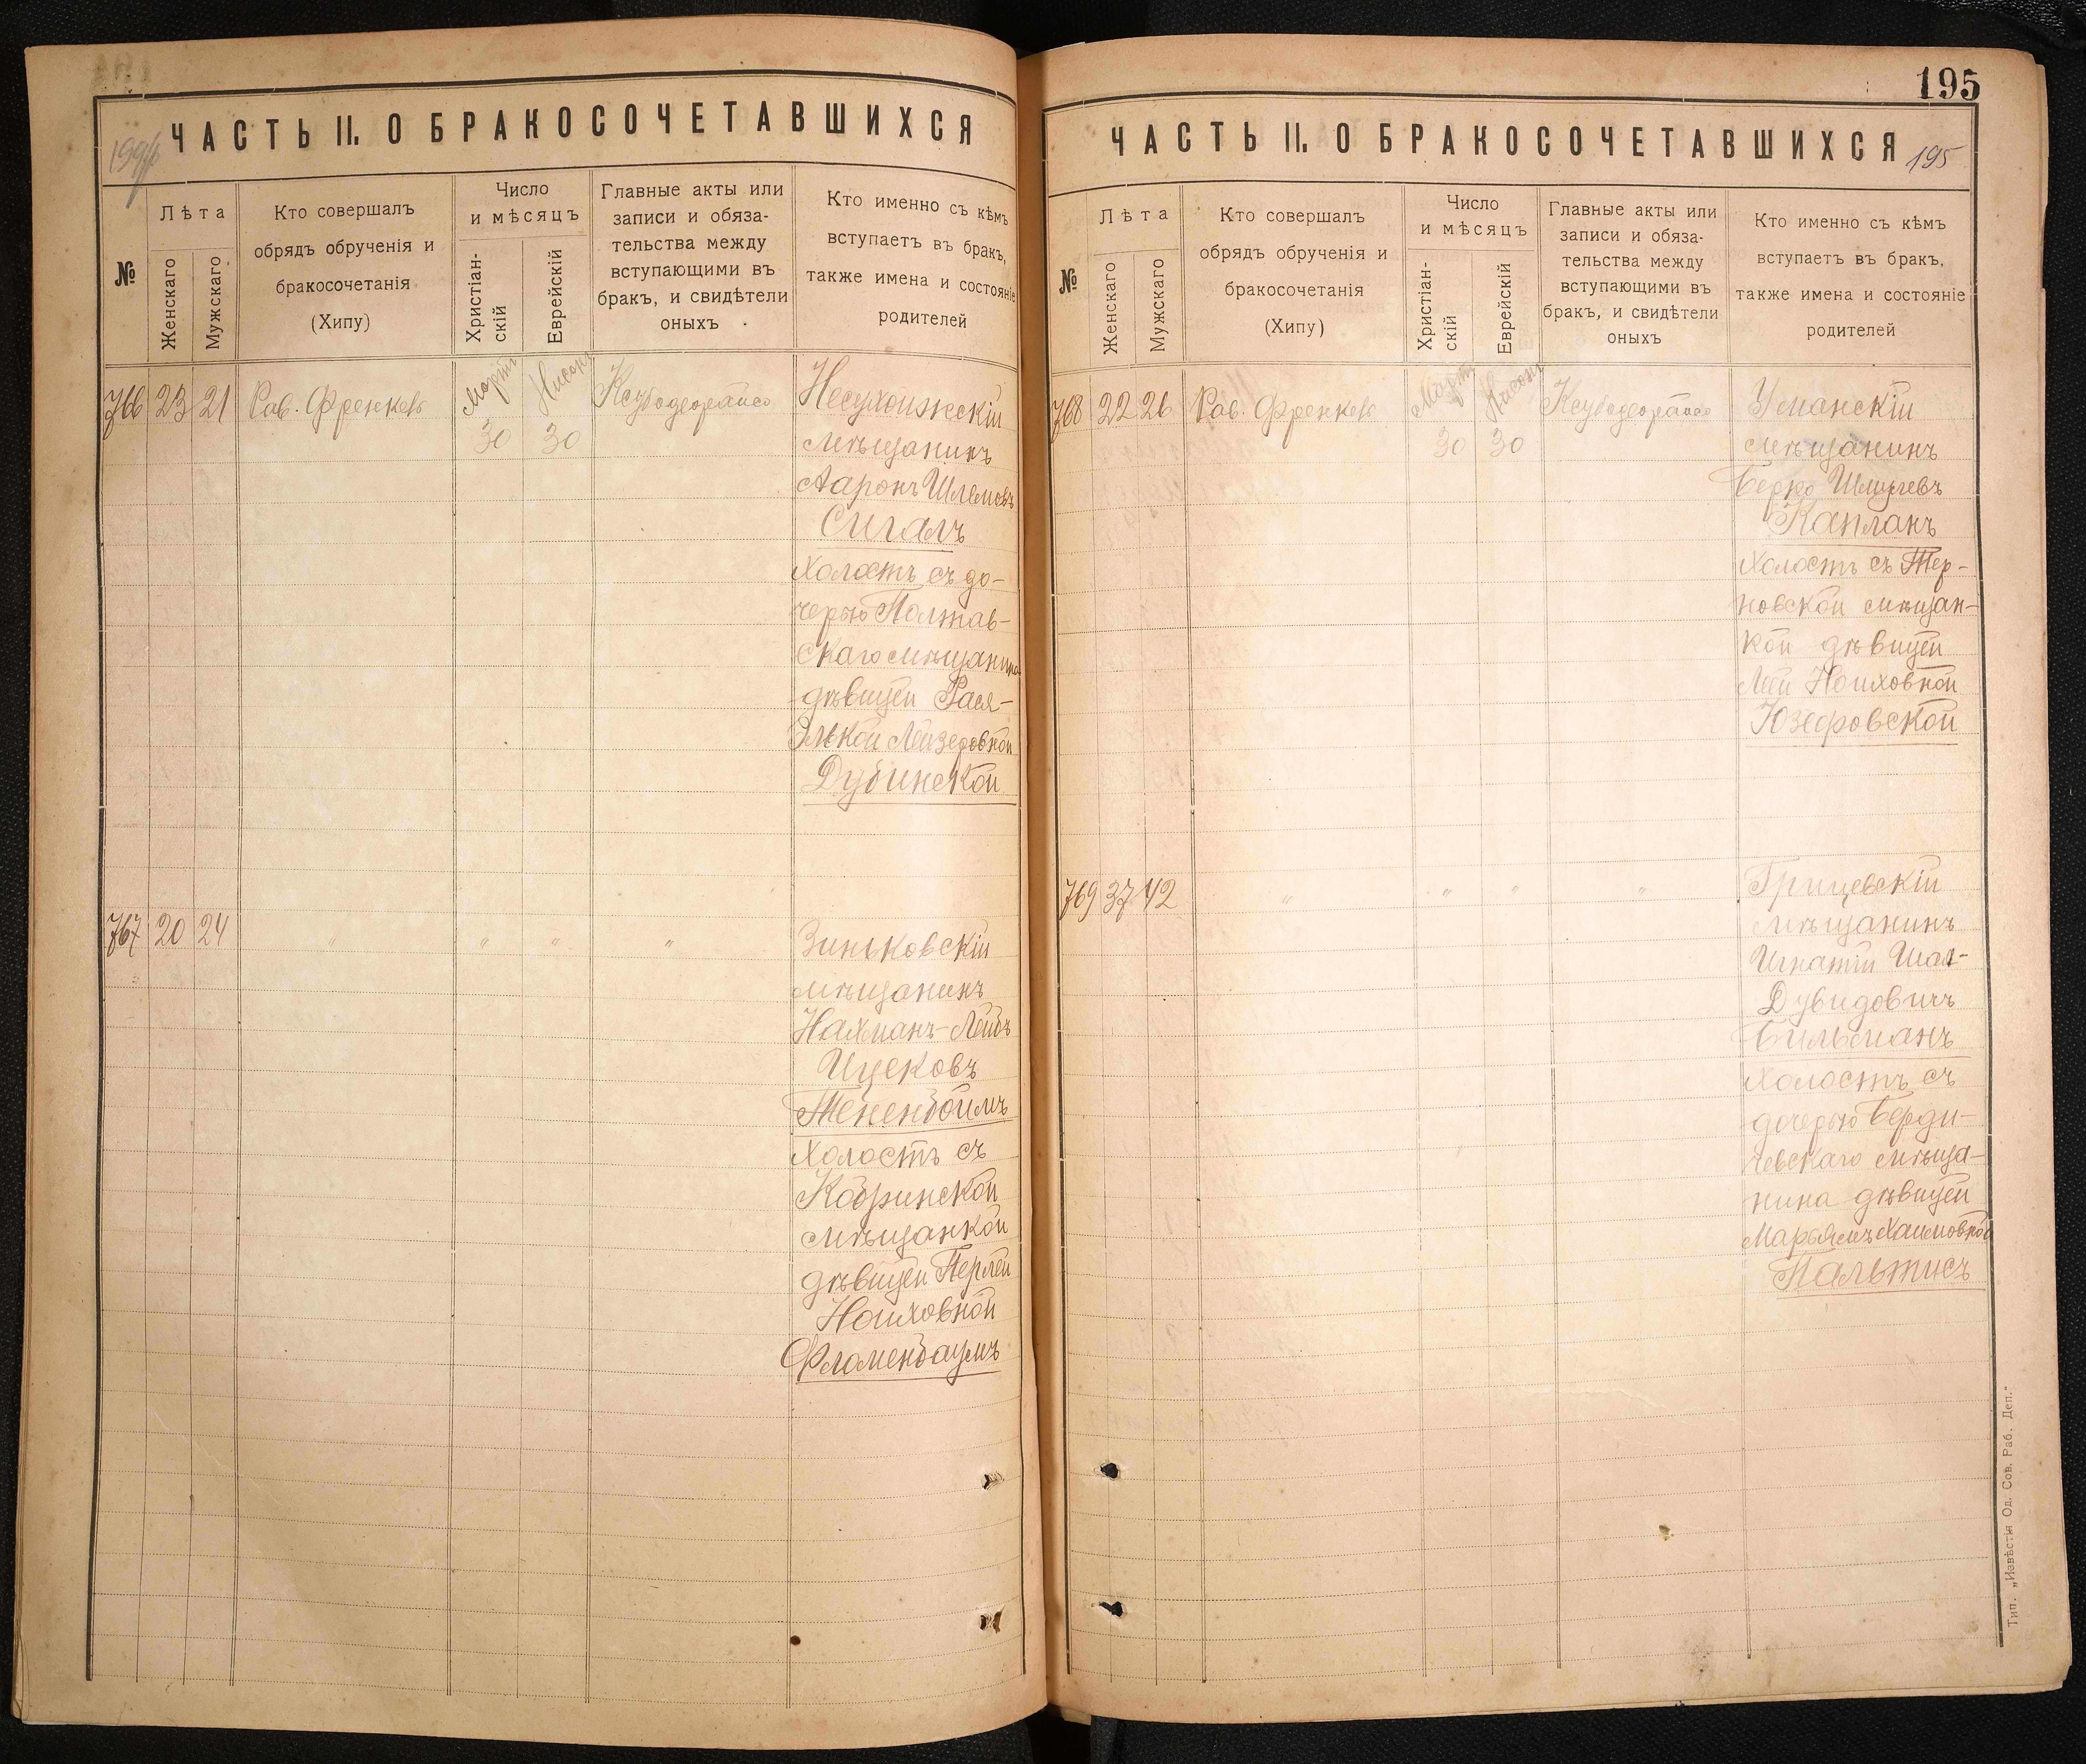 ЧАСТЬ II. О БРАКОСОЧЕТАВШИХСЯ
№
Лѣта
Женскаго
Мужскаго
Кто совершалъ
обрядъ обрученія и
бракосочетанія
(Хипу)
Число
и мѣсяцъ
Христіан-
скій
Еврейскій
Главные акты или
записи и обяза-
тельства между
вступающими въ
бракъ, и свидѣтели
оныхъ
Кто именно съ кѣмъ
вступаетъ въ бракъ,
также имена и состояніе
родителей
766 23 21 Рав. Френкель
Мартъ
30
Нисонъ
30
Несухоижскій
мѣщанинъ
Ааронъ Шлемовъ
Сигалъ
холостъ съ до-
черью Полтав-
скаго мѣщанина
дѣвицей Рася-
Элькой Лейзеровной
Дубинской
767 20 24 " " " "
Зиньковскій
мѣщанинъ
Нахманъ-Лейбъ
Ицековъ
Тененбоймъ
холостъ съ
Кобринской
мѣщанкой
дѣвицей Перлей
Ноиховной
Фламенбаумъ
195
ЧАСТЬ II. О БРАКОСОЧЕТАВШИХСЯ
195
№
Лѣта
Женскаго
Мужскаго
Кто совершалъ
обрядъ обрученія и
бракосочетанія
(Хипу)
Число
и мѣсяцъ
Христіан-
скій
Еврейскій
Главные акты или
записи и обяза-
тельства между
вступающими въ
бракъ, и свидѣтели
оныхъ
Кто именно съ кѣмъ
вступаетъ въ бракъ,
также имена и состояніе
родителей
768 22 26 Рав. Френкель
Мартъ
30
Нисонъ
30
Уманскій
мѣщанинъ
Берко Шмулевъ
Капланъ
холостъ съ Тер-
новской мѣщан-
кой дѣвицей
Леей Ноиховной
Юзефовской
769 37 42 " " " "
Грицевскій
мѣщанинъ
Игнатій Шая-
Дувидовичъ
Бильманъ
холостъ съ
дочерью Берди-
чевскаго мѣща-
нина дѣвицей
Марьямъ Хаимовной
Пальтисъ
Тип. „Извѣстія Од. Сов. Раб. Деп."